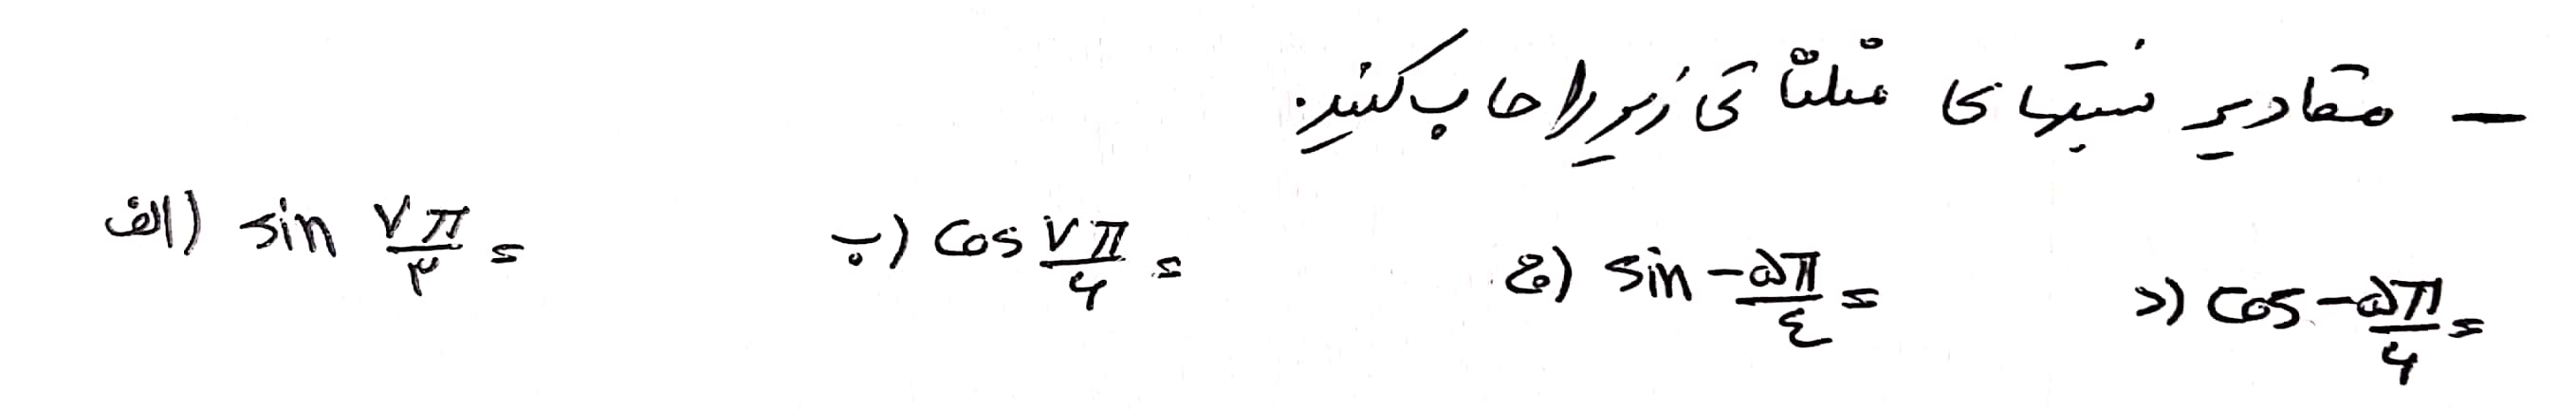 – مقادیر نسبتهای مثلثاتی زیر را حساب کنید.
الف) sin ۷π/۳ =    ب) cos ۷π/۶ =    ج) sin -۵π/۴ =    د) cos -۵π/۶ =